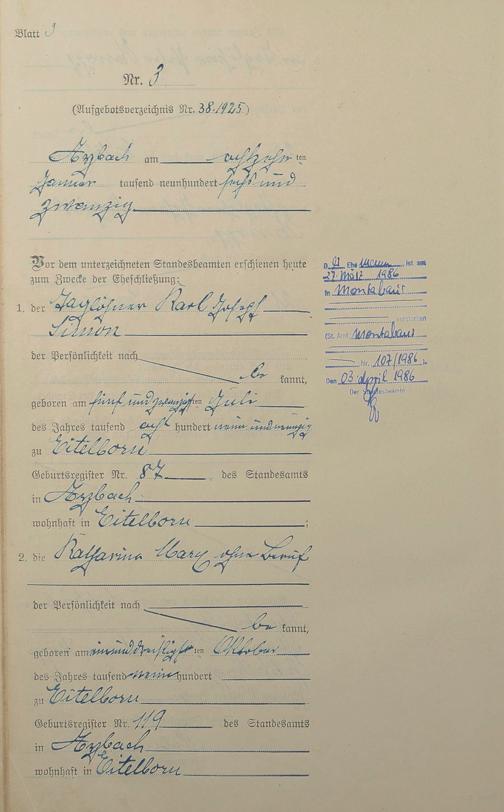 Blatt 3
Nr. 3
(Aufgebotsverzeichnis Nr. 38.1925)
Arzbach am achtzehn ten
Januar tausend neunhundert sechs und
zwanzig
Vor dem unterzeichneten Standesbeamten erschienen heute
zum Zwecke der Eheschließung:
1. der Taglöhner Karl Joseph
Simon
der Persönlichkeit nach
be kannt,
geboren am fünf und zwanzigsten Juli
des Jahres tausend acht hundert neun und neunzig
zu Eitelborn
Geburtsregister Nr. 87 des Standesamts
in Arzbach
wohnhaft in Eitelborn ;
2. die Katharina Marx ohne Beruf
der Persönlichkeit nach
be kannt,
geboren am einunddreißigsten Oktober
des Jahres tausend neun hundert
zu Eitelborn
Geburtsregister Nr. 119 des Standesamts
in Arzbach
wohnhaft in Eitelborn
Ehemann ist am
27. März 1986
in Montabaur
verstorben
(St. Amt Montabaur
Nr. 107/1986 ).
Den 03. April 1986
Der Standesbeamte